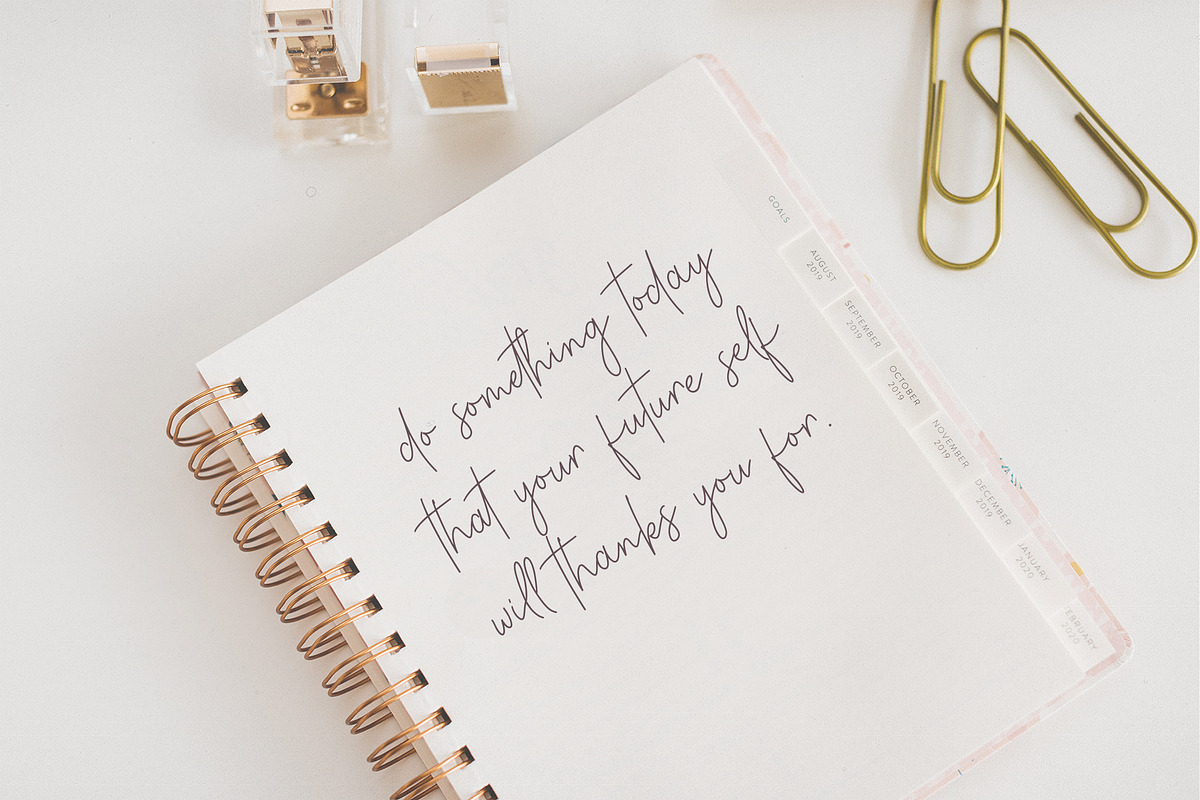 do something today
that your future self
will thanks you for.
GOALS
AUGUST
2019
SEPTEMBER
2019
OCTOBER
2019
NOVEMBER
2019
DECEMBER
2019
JANUARY
2020
FEBRUARY
2020